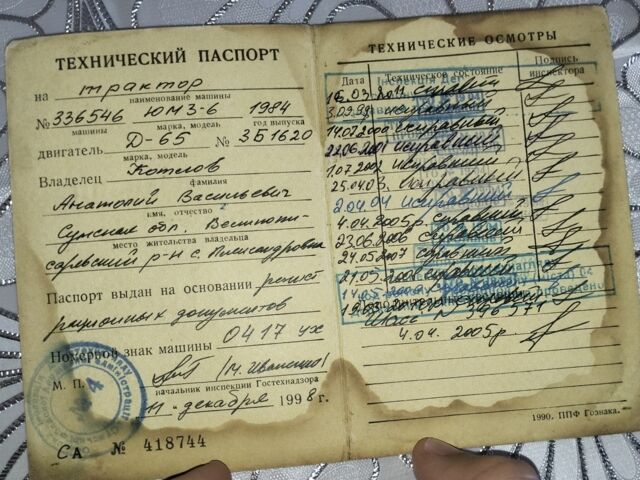 ТЕХНИЧЕСКИЙ ПАСПОРТ
на трактор
наименование машины
№ 336546 ЮМЗ-6 1984
машины марка, модель год выпуска
двигатель Д-65 № 3Б1620
марка, модель
Владелец Котлов
фамилия
Анатолий Васильевич
имя, отчество
Сумская обл. Великопи-
место жительства владельца
саревский р-н с. Александровка
Паспорт выдан на основании регист
рационных документов
Номерной знак машины 0417 их
М. П.
начальник инспекции Гостехнадзора
11 декабря 1998 г.
СА № 418744
ТЕХНИЧЕСКИЕ ОСМОТРЫ
Дата Техническое состояние Подпись инспектора
03.2011 справний
3.09.99 исправний
14.07.2000 исправний
22.06.2001 исправний
1.07.2002 исправний
25.04.03 исправний
2.04.04 исправний
4.04.2005р справний
23.06.2006 справний
24.05.2007 справний
21.05.2008 справний
№ 396571
4.04.2005р
1990. ППФ Гознака.